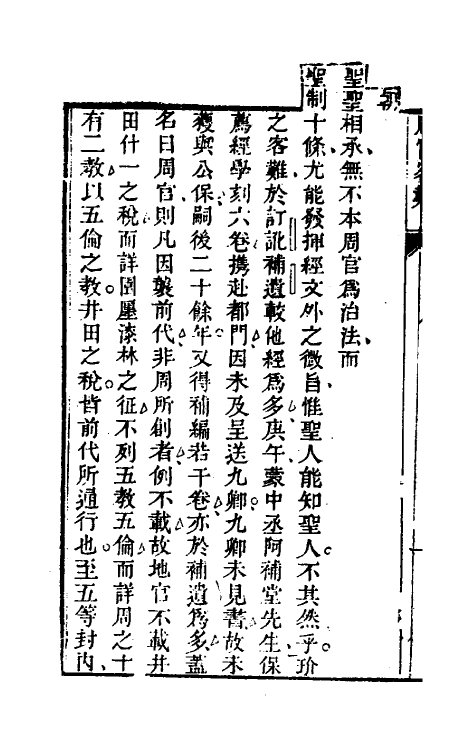 聖聖相承無不本周官爲治法而
聖制十條尤能發揮經文外之微旨惟聖人能知聖人不其然乎玠
之客難於訂訛補遺較他經爲多庚午蒙中丞阿補堂先生保
薦經學刻六卷携赴都門因未及呈送九卿九卿未見書故未
獲與公保嗣後二十餘年又得補編若干卷亦於補遺爲多蓋
名曰周官則凡因襲前代非周所創者例不載故地官不載井
田什一之稅而詳園廛漆林之征不列五教五倫而詳周之十
有二教以五倫之教井田之稅皆前代所通行也至五等封內